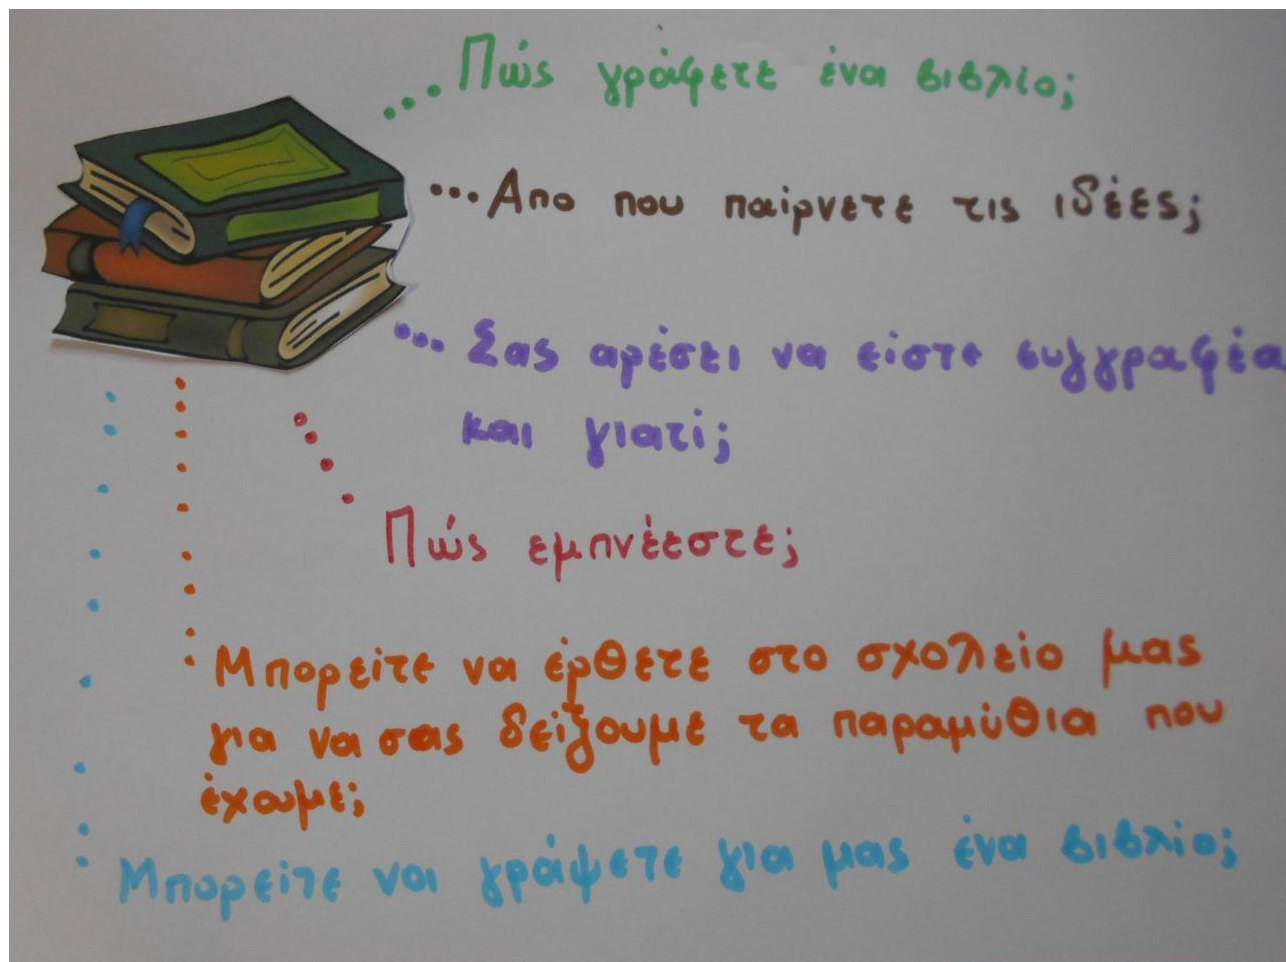 Πώς γράφετε ένα βιβλίο;
Απο που παίρνετε τις ιδέες;
Σας αρέσει να είστε συγγραφέα
και γιατί;
Πώς εμπνέεστε;
Μπορείτε να έρθετε στο σχολείο μας
για να σας δείξουμε τα παραμύθια που
έχουμε;
Μπορείτε να γράψετε για μας ένα βιβλίο;